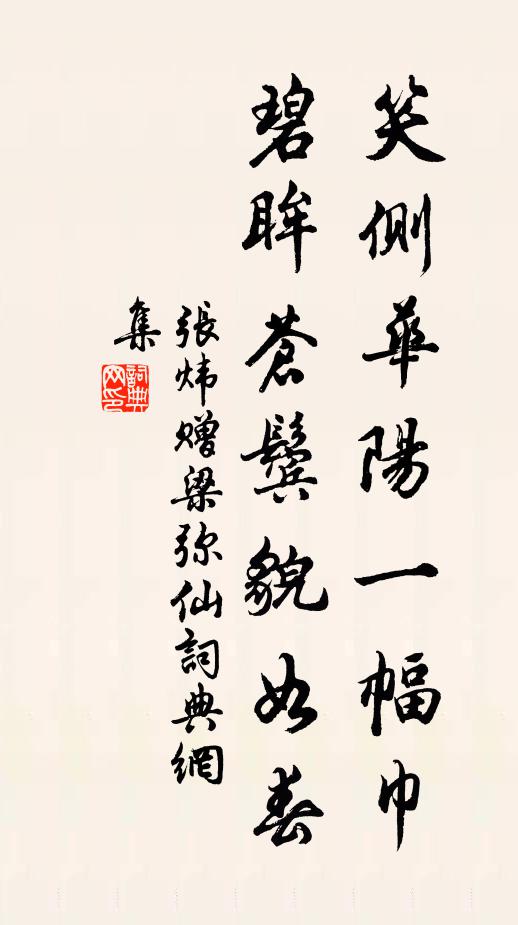 笑側華陽一幅巾
碧眸蒼鬢貌如春
張煒贈梁弥仙詞典網
集
詞典
网印